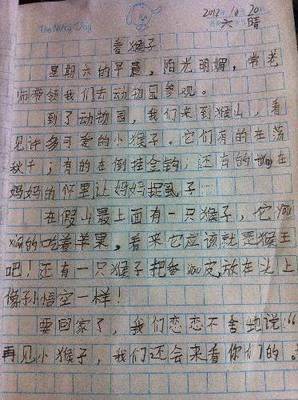 The Nancy Dog
2012. 10. 20
六 晴
看猴子
星期六的早晨，阳光明媚，常老
师带领我们去动物园参观。
到了动物园，我们来到猴山，看
见许多可爱的小猴子。它们有的在荡
秋千；有的在倒挂金钩；还有的在
妈妈的怀里让妈妈捉虱子…
在假山最上面有一只猴子，它
的吃着苹果，看来它应该就是猴王
吧！还有一只猴子把香皮放在头上
像孙悟空一样！
要回家了，我们恋恋不舍地说：“
再见小猴子，我们还会来看你们的。